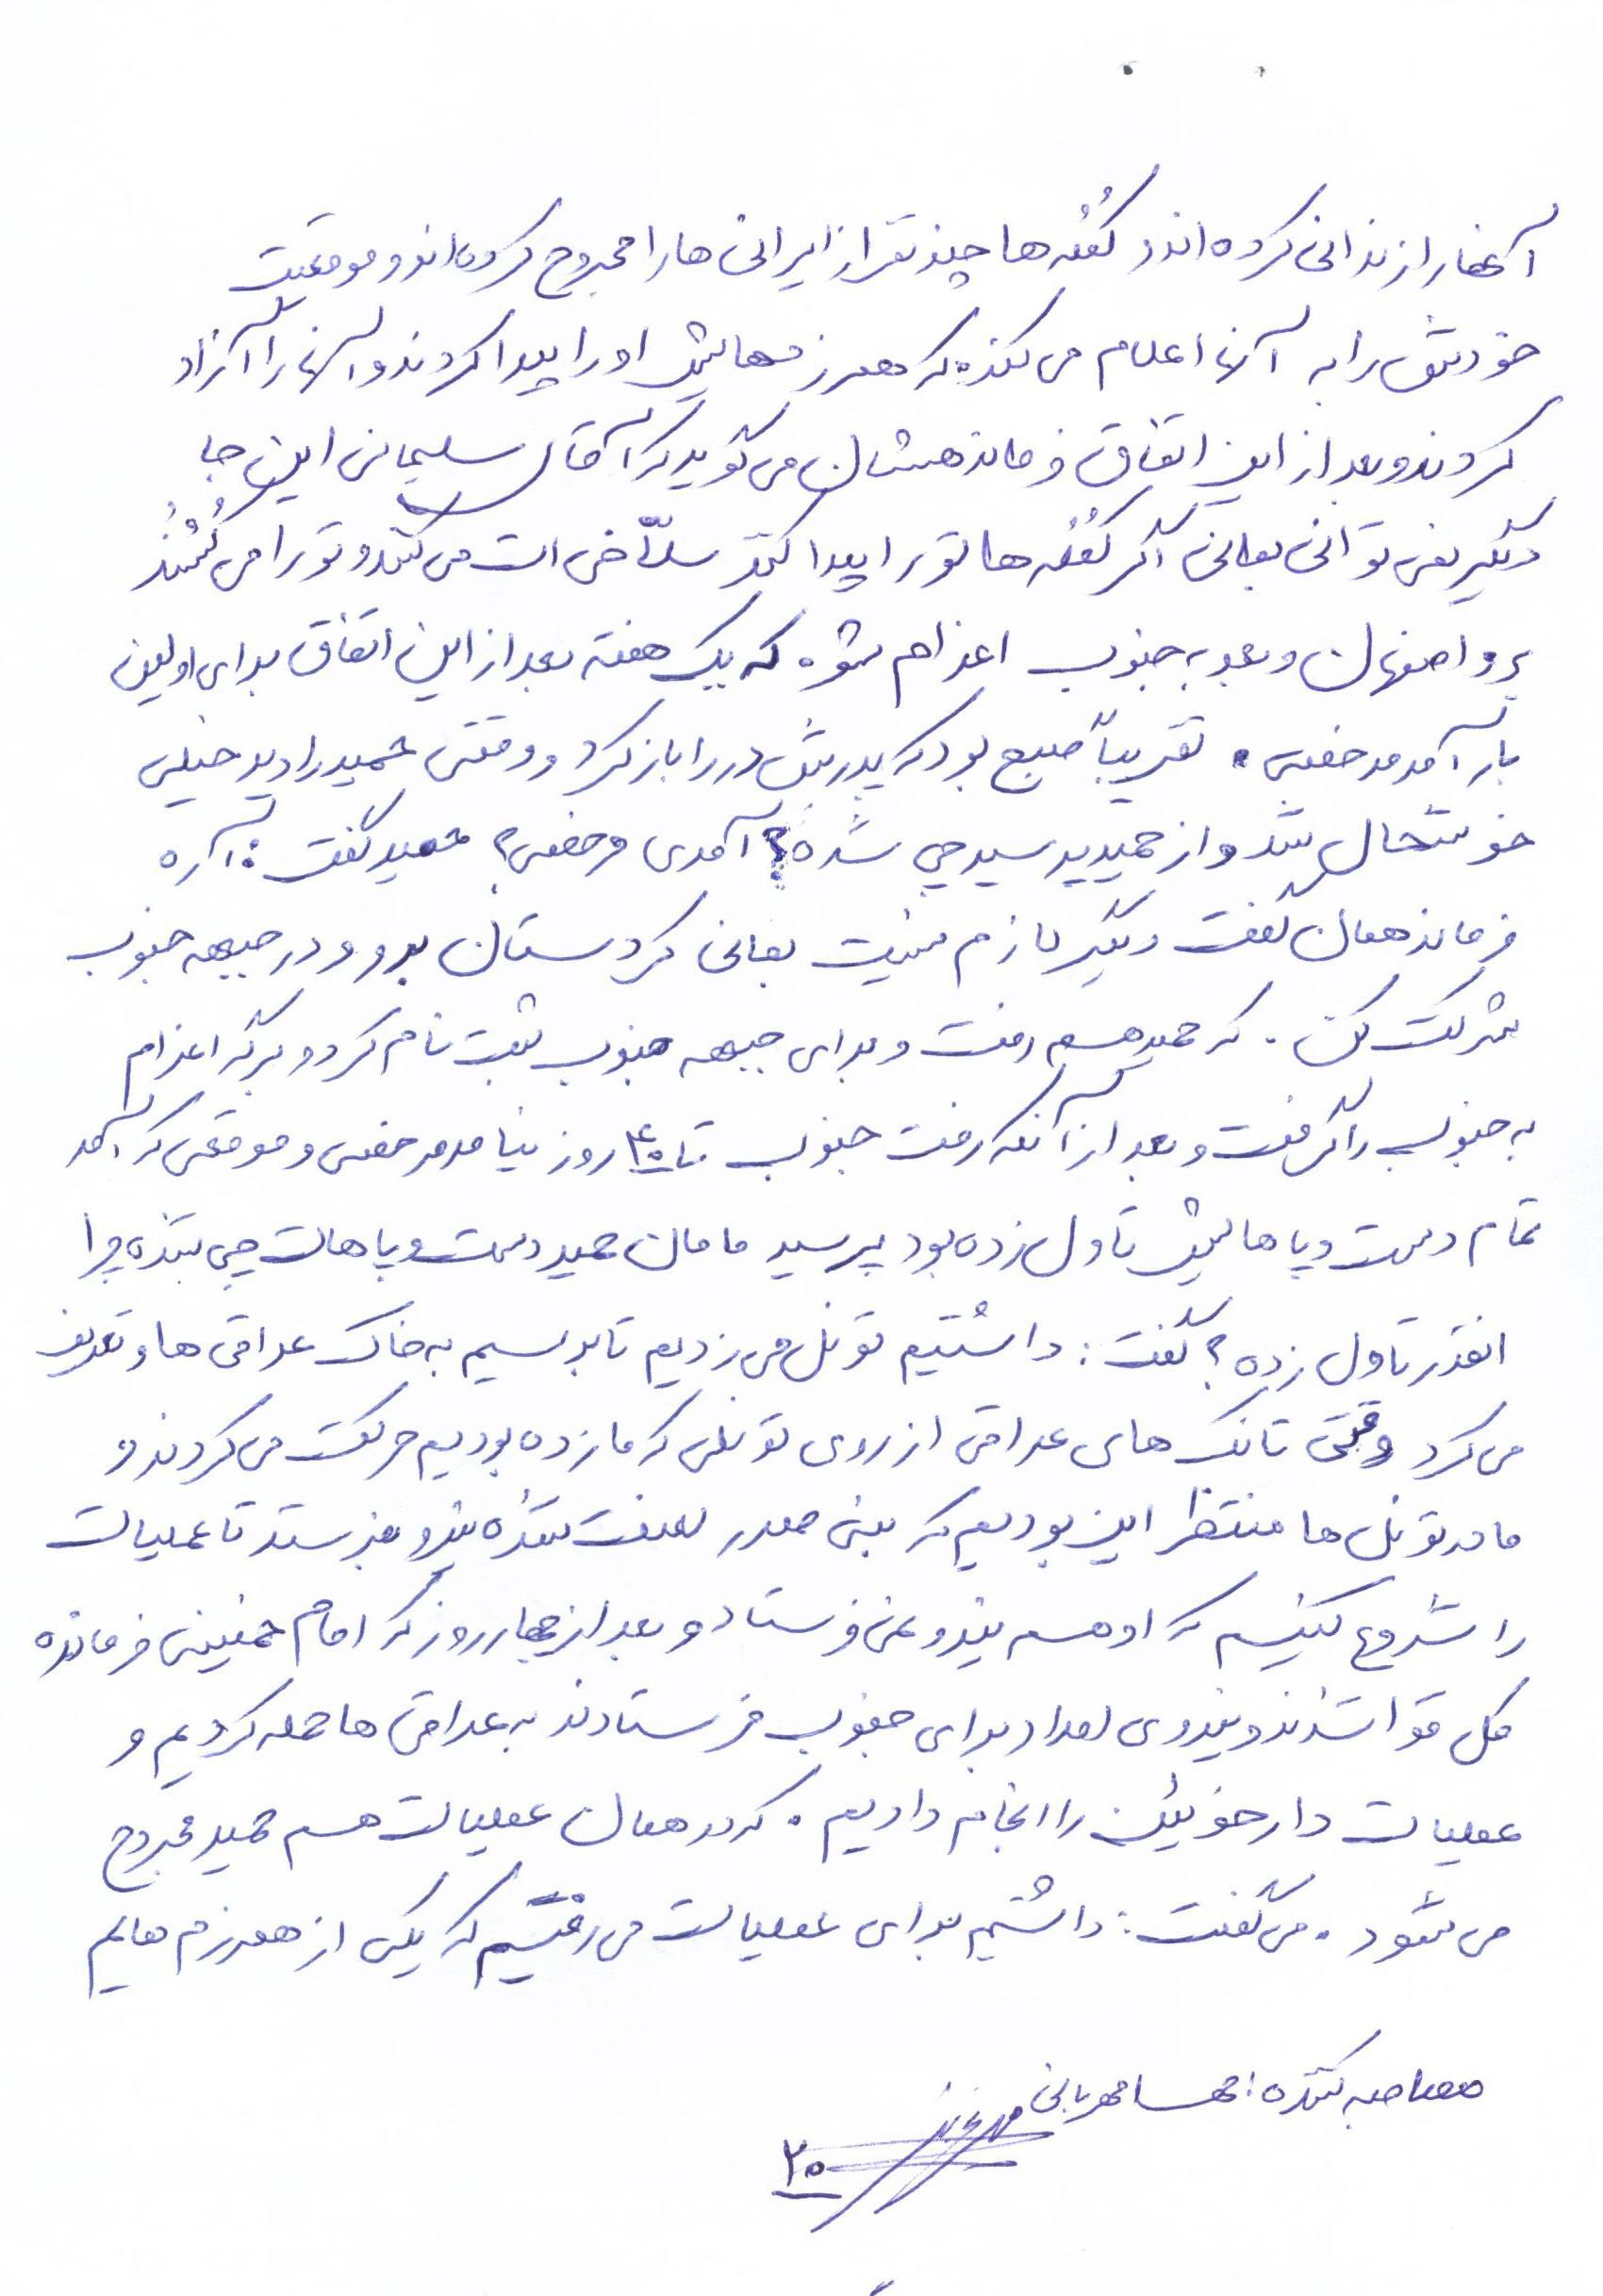 آنها را زندانی کرده اند و کُفُله ها چند نفر از ایرانی ها را مجروح کرده اند و موقعیت
خودش را به آنها اعلام می کند که همرزمهایش او را پیدا کردند و آنها را آزاد
کردند و بعد از این اتفاق فرماندهشان می گوید که آقای سلیمانی این جا
دیگر نمی توانی بمانی اگر کُفُله ها تو را پیدا کنند سلّاخی ات می کنند و تو را می کُشند
برو اصفهان و بعد به جنوب اعزام شو. که یک هفته بعد از این اتفاق برای اولین
بار آمد مرخصی. تقریباً صبح بود که پدرش در را باز کرد و وقتی حمید را دید خیلی
خوشحال شد و از حمید پرسید چی شده؟ آمدی مرخصی؟ حمید گفت: آره
فرماندهمان گفت دیگر لازم نیست بمانی کردستان برو و در جبهه جنوب
شرکت کن. که حمید هم رفت و برای جبهه جنوب ثبت نام کرد و برگه اعزام
به جنوب را گرفت و بعد از آنکه رفت جنوب تا ۴۰ روز نیامد مرخصی و موقعی که آمد
تمام دست و پاهایش تاول زده بود پرسید مامان حمید دست و پاهات چی شده چرا
انقدر تاول زده؟ گفت: داشتیم تونل می زدیم تا برسیم به خاک عراقی ها و تعریف
می کرد وقتی تانک های عراقی از روی تونلی که ما زده بودیم حرکت می کردند و
ما در تونل ها منتظر این بودیم که بنی صدر لعنت شده نیرو بفرستد تا عملیات
را شروع کنیم که او هم نیرو نمی فرستاد و بعد از چهار روز که امام خمینی فرمانده
کل قوا شدند و نیروی امداد برای جنوب فرستادند به عراقی ها حمله کردیم و
عملیات دارخوئین را انجام دادیم. که در همان عملیات هم حمید مجروح
می شود. می گفت: داشتیم برای عملیات می رفتیم که یکی از همرزم هایم
مصاحبه کننده: مهسا مهربانی
۲۰